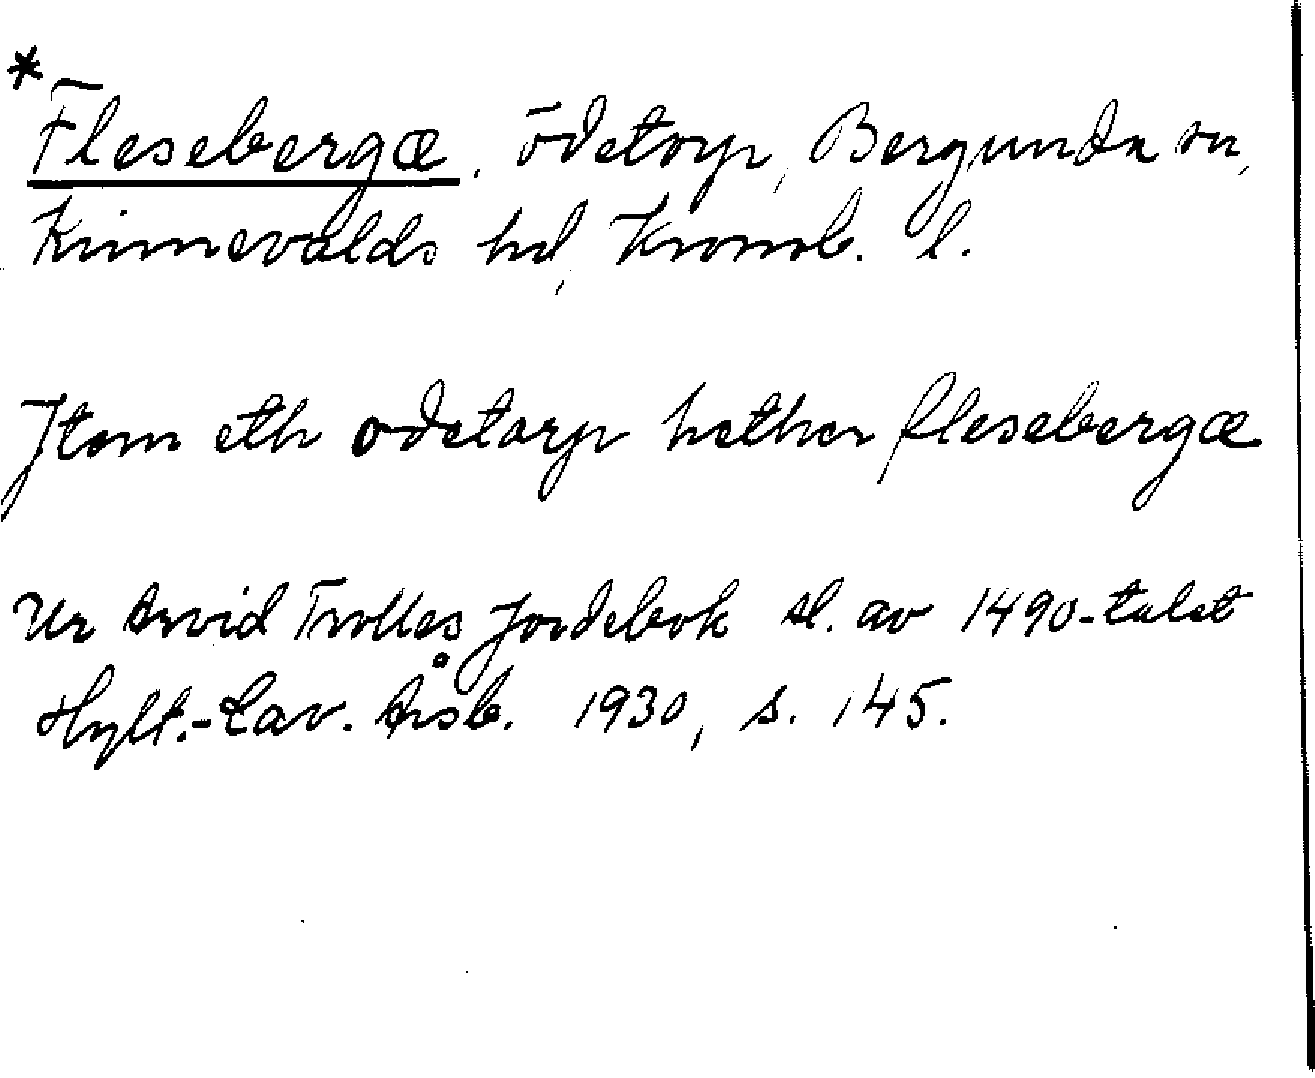 *
Flesebergæ, ödetorp, Bergunda sn,
Kinnevalds hd, Kronob. l.
Jtem eth odetorp hether flesebergæ
Ur Arvid Trolles Jordebok sl. av 1490-talet
Hylt.-Cav. Årsb. 1930, s. 145.